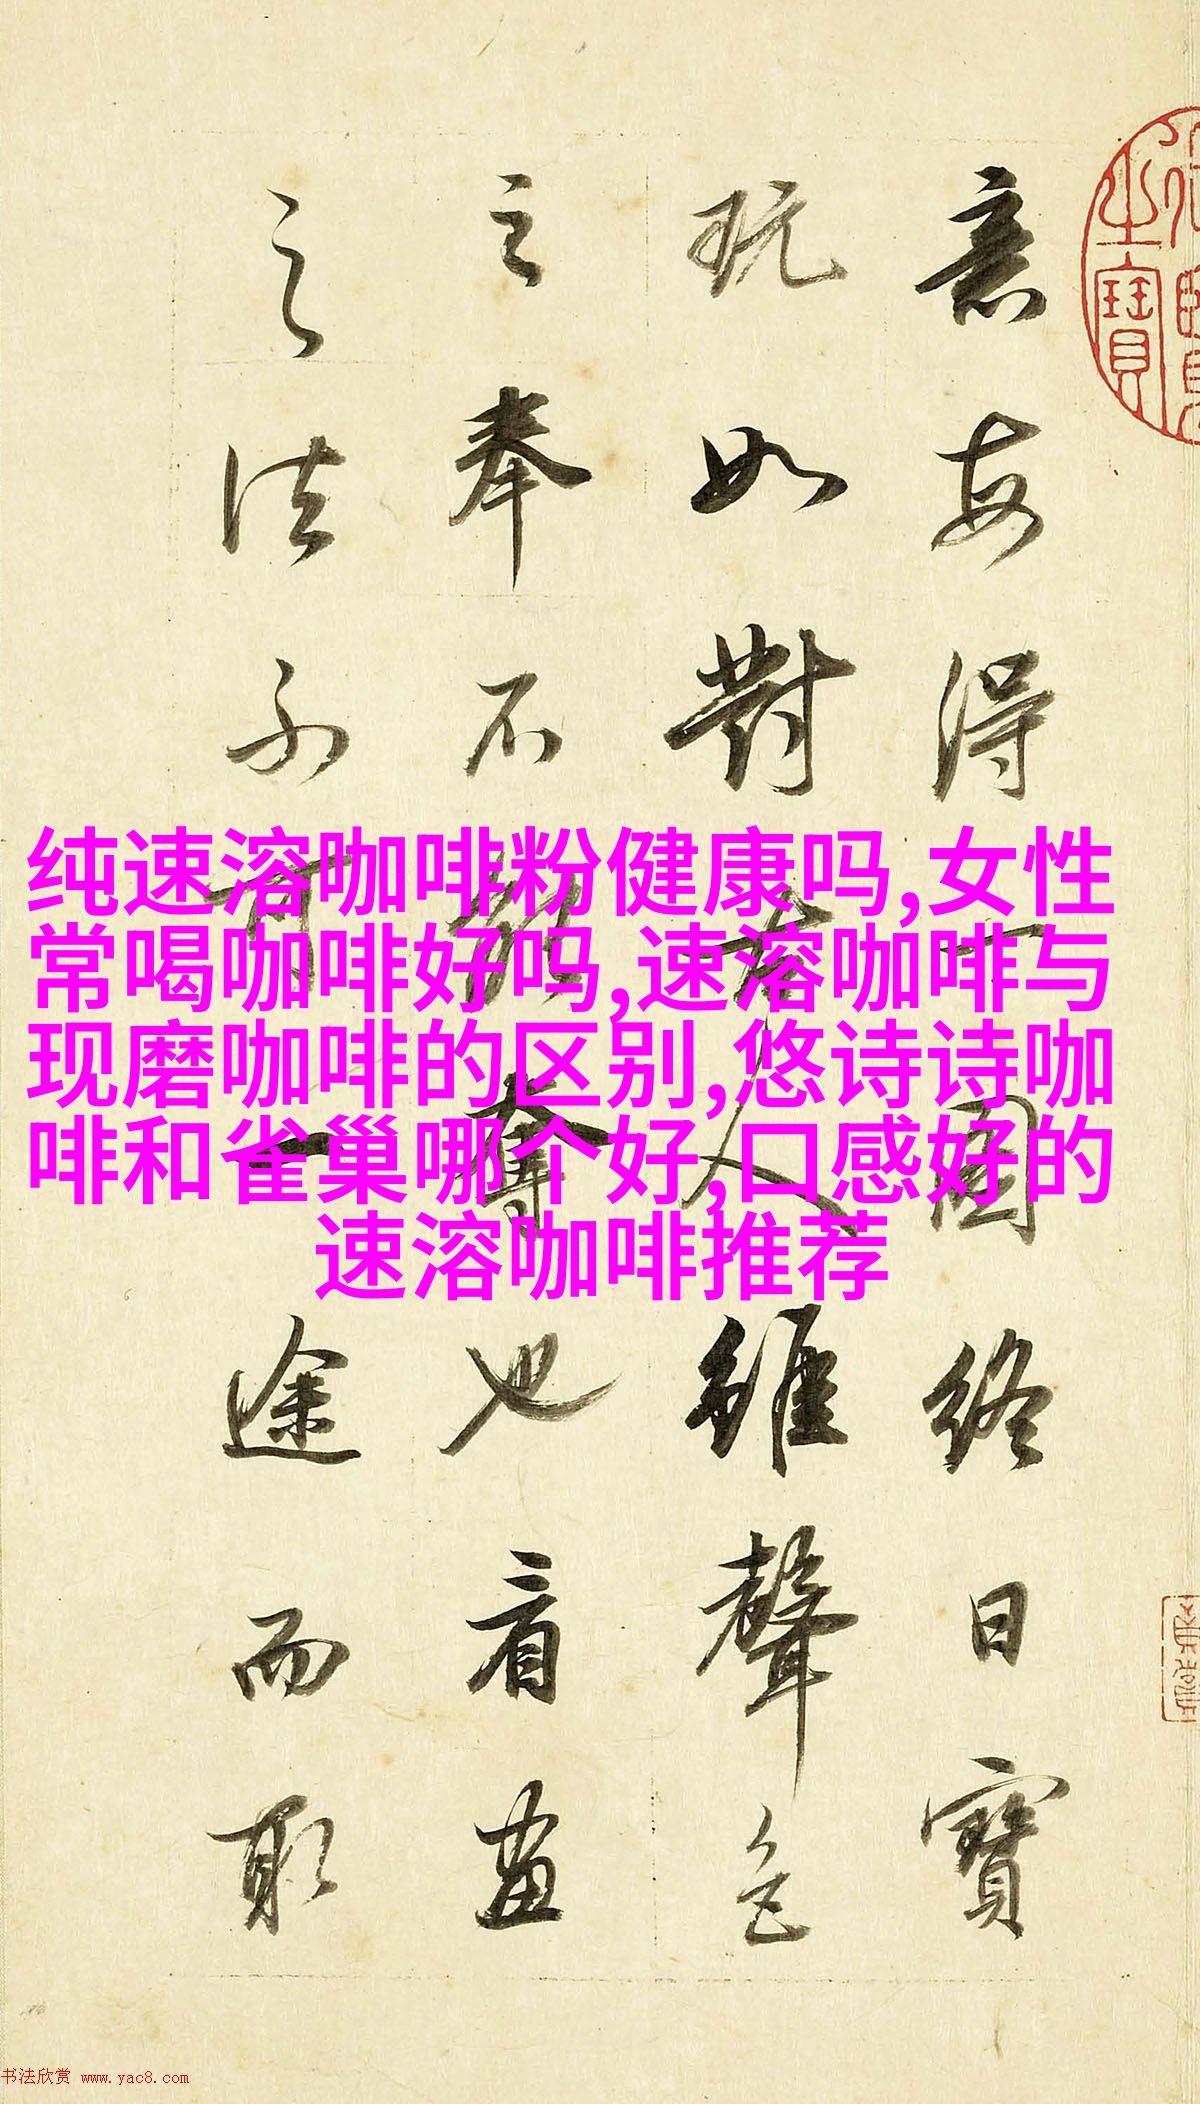 纯速溶咖啡粉健康吗,女性
常喝咖啡好吗,速溶咖啡与
现磨咖啡的区别,悠诗诗咖
啡和雀巢哪个好,口感好的
速溶咖啡推荐
意每得一圖終日寶
玩如對古人雖聲色
之奉不能奪也看畫
之法不可一途而取
之寶
书法欣赏 www.yac8.com